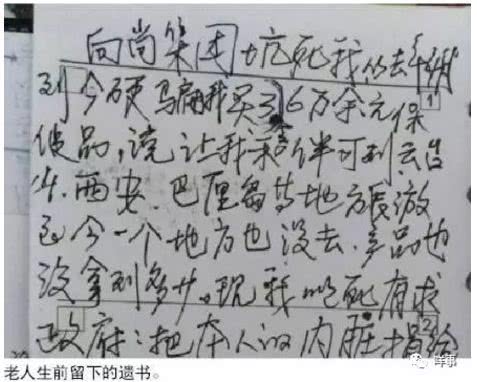 向尚集团坑死我 去年
到今硬骗我买了6万余元保
健品,说让我老伴可到云台
山.西安.巴厘岛等地方旅游
到今一个地方也没去.产品也
没拿到多少。现我以死有求
政府:把本人的内脏捐给
老人生前留下的遗书。